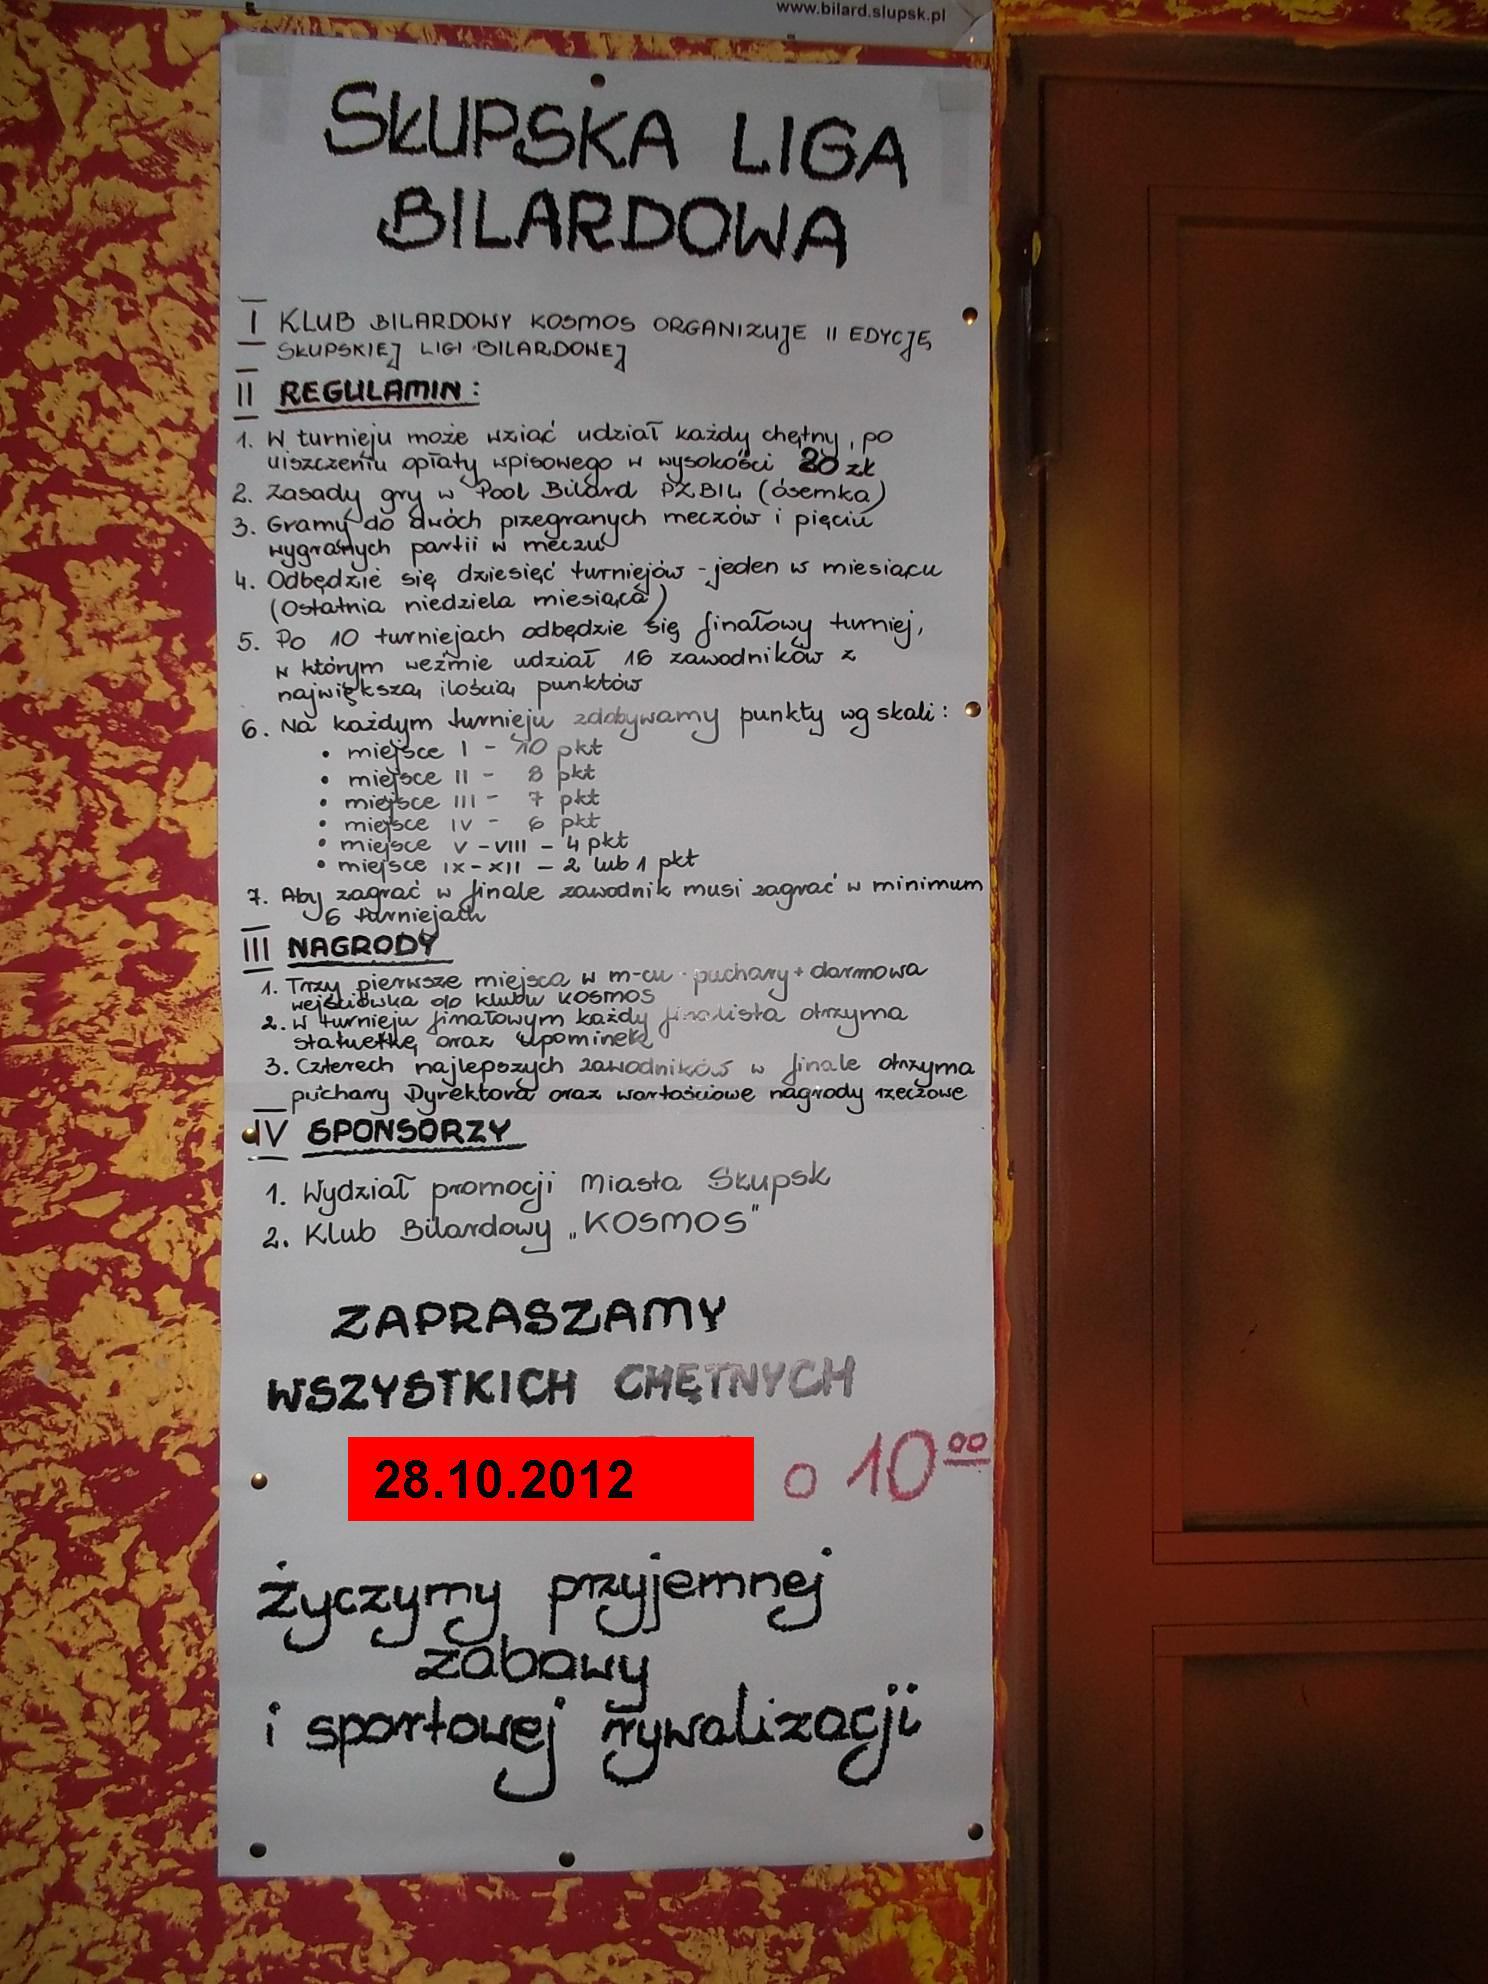 www.bilard.slupsk.pl
SŁUPSKA LIGA
BILARDOWA
I KLUB BILARDOWY KOSMOS ORGANIZUJE II EDYCJĘ
SŁUPSKIEJ LIGI BILARDOWEJ
II REGULAMIN:
1. W turnieju może wziąć udział każdy chętny, po
uiszczeniu opłaty wpisowego w wysokości 20 zł
2. Zasady gry w Pool Bilard PZBIL (ósemka)
3. Gramy do dwóch przegranych meczów i pięciu
wygranych partii w meczu
4. Odbędzie się dziesięć turniejów - jeden w miesiącu
(Ostatnia niedziela miesiąca)
5. Po 10 turniejach odbędzie się finałowy turniej,
w którym weźmie udział 16 zawodników z
największą ilością punktów
6. Na każdym turnieju zdobywamy punkty wg skali:
• miejsce I - 10 pkt
• miejsce II - 8 pkt
• miejsce III - 7 pkt
• miejsce IV - 6 pkt
• miejsce V - VIII - 4 pkt
• miejsce IX - XII - 2 lub 1 pkt
7. Aby zagrać w finale zawodnik musi zagrać w minimum
6 turniejach
III NAGRODY
1. Trzy pierwsze miejsca w m-cu - puchary + darmowa
wejściówka do klubu KOSMOS
2. W turnieju finałowym każdy finalista otrzyma
statuetkę oraz upominek
3. Czterech najlepszych zawodników w finale otrzyma
puchary Dyrektora oraz wartościowe nagrody rzeczowe
IV SPONSORZY
1. Wydział promocji Miasta Słupsk
2. Klub Bilardowy „KOSMOS"
ZAPRASZAMY
WSZYSTKICH CHĘTNYCH
28.10.2012 o 10⁰⁰
życzymy przyjemnej
zabawy
i sportowej rywalizacji